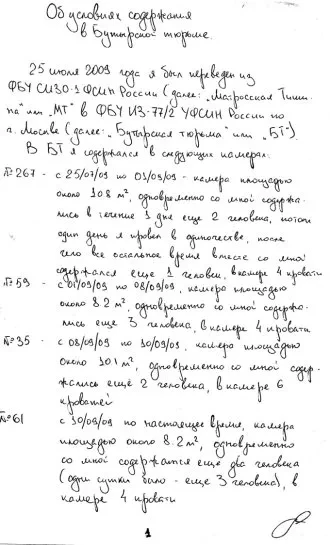 Об условиях содержания
в Бутырской тюрьме.
25 июля 2009 года я был переведен из
ФБУ СИЗО-1 ФСИН России (далее: „Матросская Тиши-
на" или „МТ" в ФБУ ИЗ-77/2 УФСИН России по
г. Москве (далее: „Бутырская тюрьма" или „БТ").
В БТ я содержался в следующих камерах:
№267 - с 25/07/09 по 01/09/09 - камера площадью
около 10.8 м², одновременно со мной содержа-
лись в течение 1 дня еще 2 человека, потом
один день я провел в одиночестве, после
чего все остальное время вместе со мной
содержался еще 1 человек, в камере 4 кровати
№59 - с 01/09/09 по 08/09/09, камера площадью
около 8.2 м², одновременно со мной содержа-
лись еще 3 человека, в камере 4 кровати
№35 - с 08/09/09 по 10/09/09, камера площадью
около 10.1 м², одновременно со мной содер-
жались еще 2 человека, в камере 6
кроватей
№61 с 10/09/09 по настоящее время, камера
площадью около 8.2 м², одновременно
со мной содержатся еще два человека
(одни сутки было - еще 3 человека), в
камере 4 кровати
1